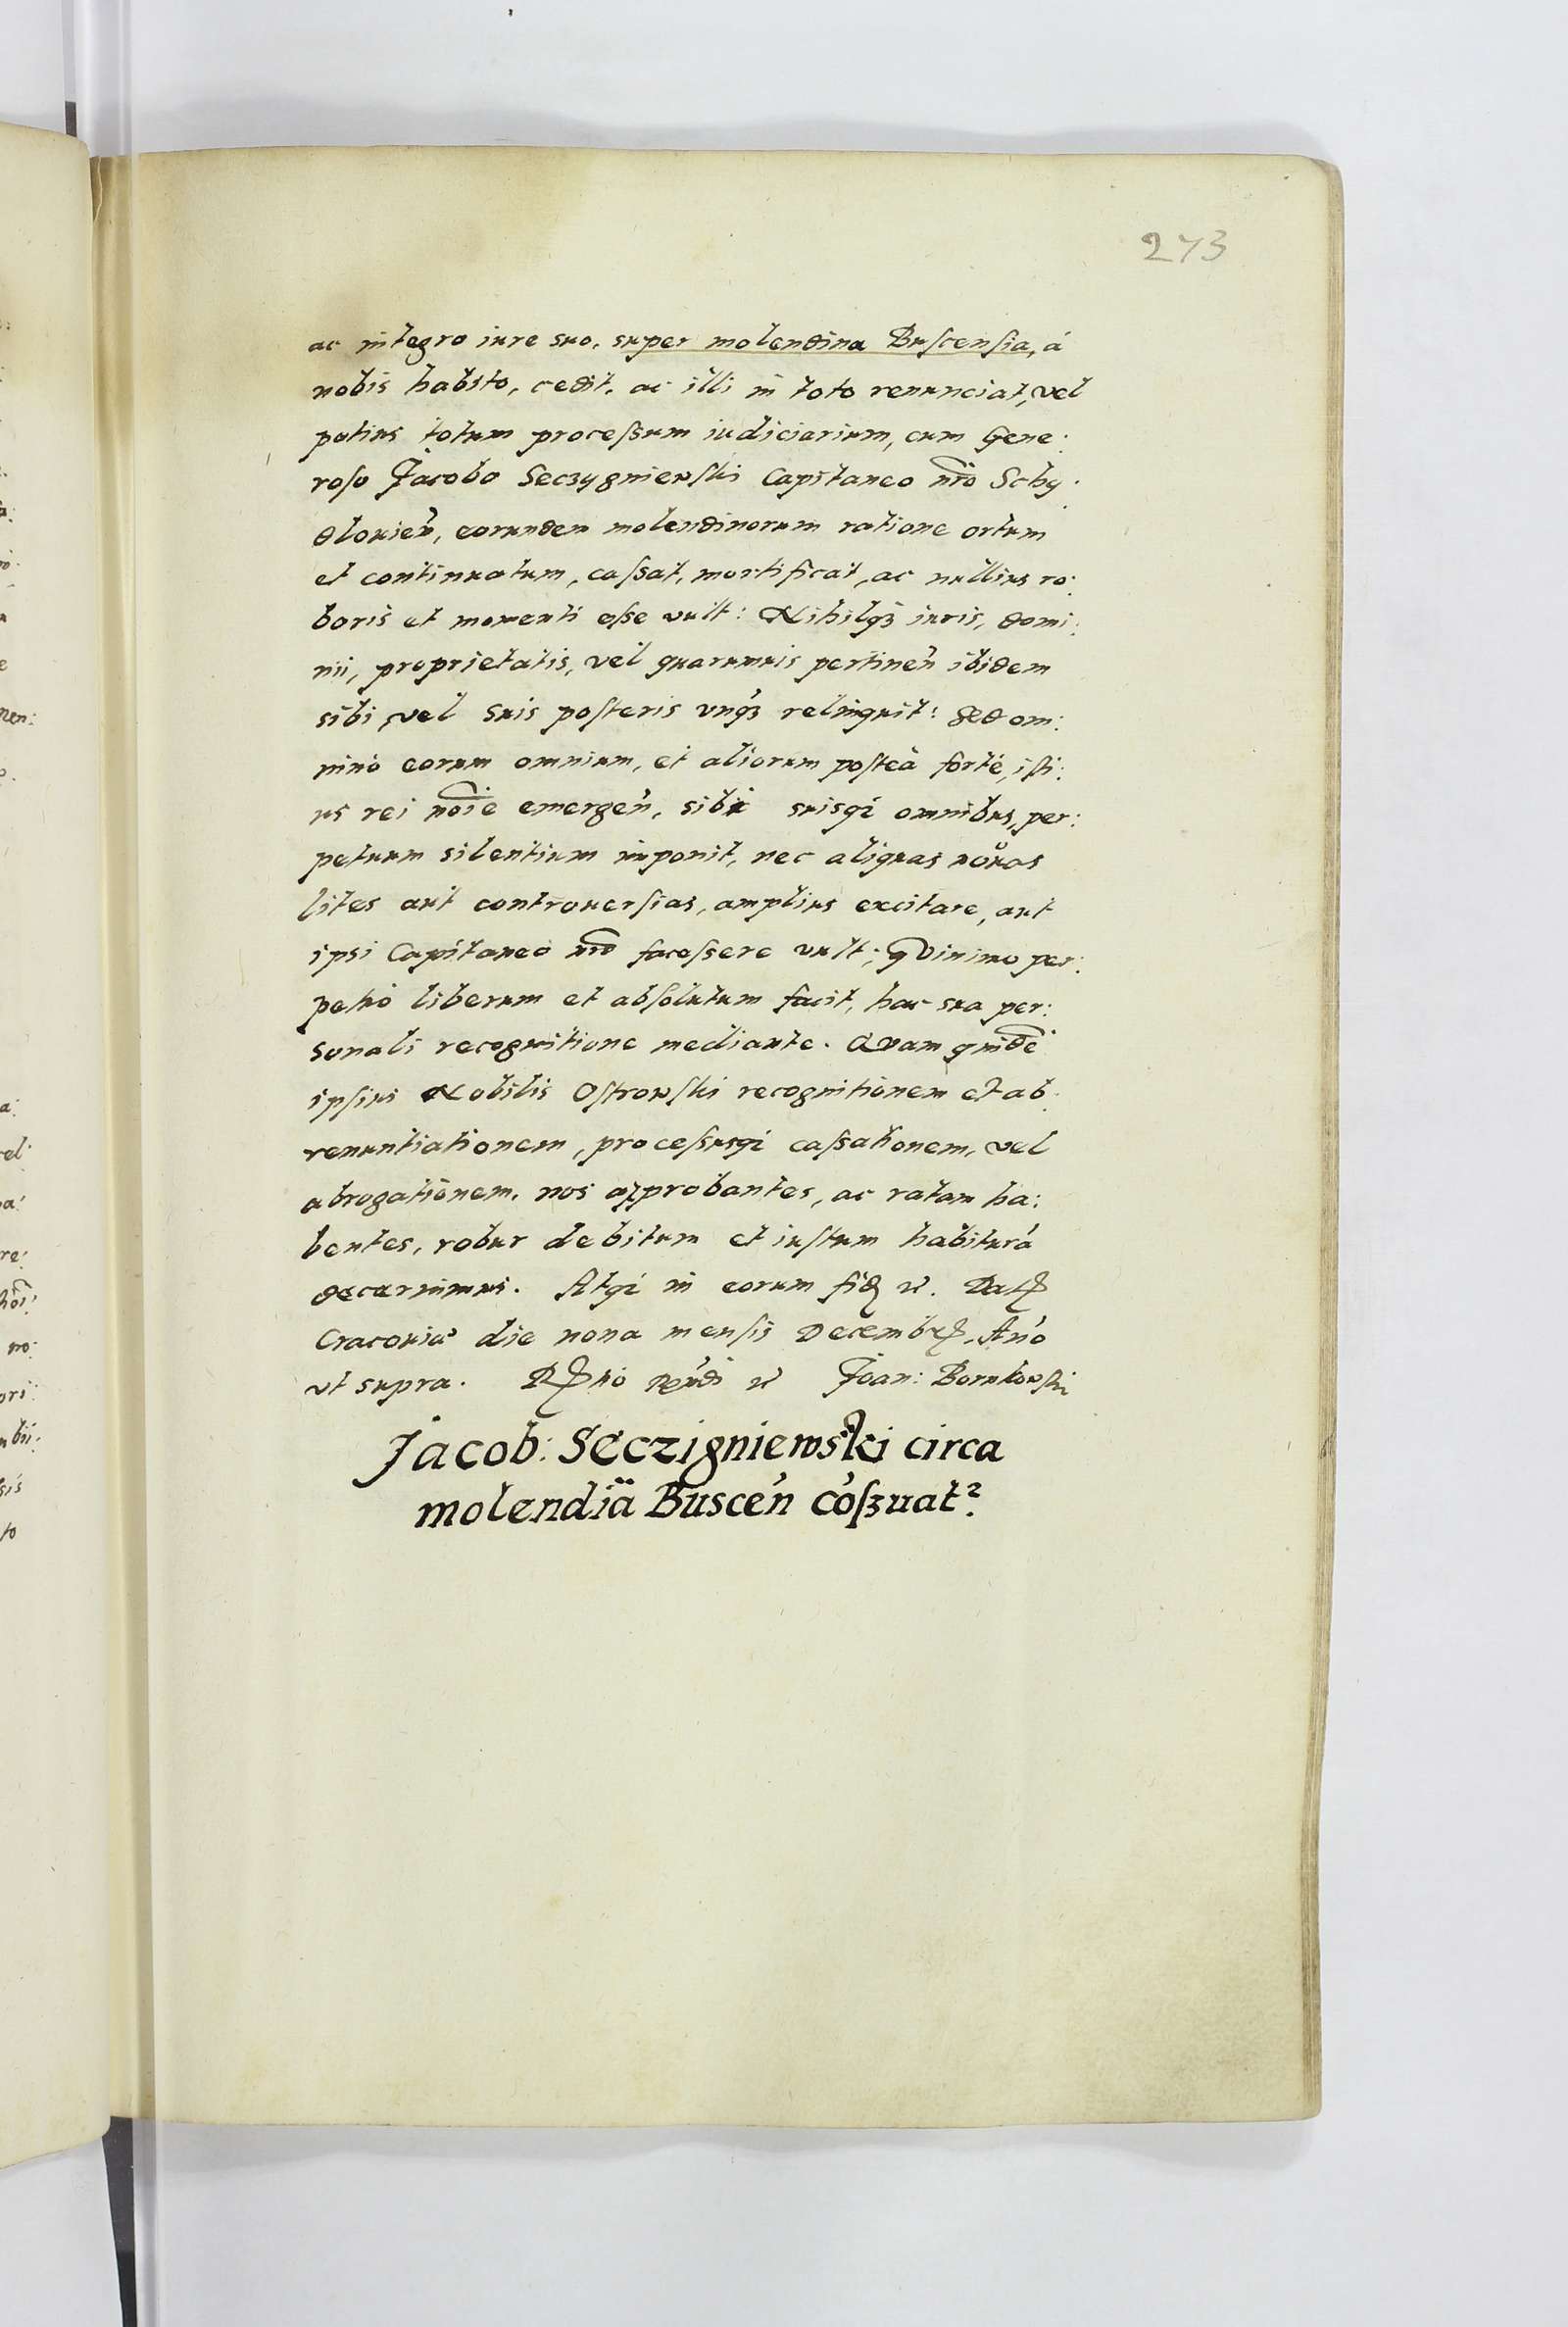 273
ac integro iure suo, super molendina Buscensia, á
nobis habito, cedit, ac illi in toto renunciat, vel
potius totum processum iudiciarium, cum Gene:
roso Jacobo Seczygniewski Capitaneo nr̃o Schy:
dlouień, eorundem molendinorum ratione ortum
et continuatum, cassat, mortificat, ac nullius ro:
boris et momenti esse vult: Nihilqz iuris, domi:
nii, proprietatis, vel quarumuis pertineń ibidem
sibi, vel suis posteris vnqz relinquit: sed om:
ninò eorum omnium, et aliorum posteà fortè, isti:
us rei nõie emergeń, sibi suisqz omnibus, per:
petuum silentium imponit, nec aliquas nouas
lites aut controuersias, amplius excitare, aut
ipsi Capitaneo nr̃o facessere vult; qVinimo per:
petuò liberum et absolutum facit, hac sua per:
sonali recognitione mediante. QVam quidẽ
ipsius Nobilis Ostrowski recognitionem et ab:
renuntiationem, processusqz cassationem, vel
abrogationem, nos approbantes, ac ratam ha:
bentes, robur debitum et iustum habiturá
decernimus. Atqz in eorum fid
Cracouiæ die nona mensis Decembr. Ańo
vt supra. Joan: Bornkowski
Jacob: Seczigniewski circa
molendiä Busceń cóſzuat²